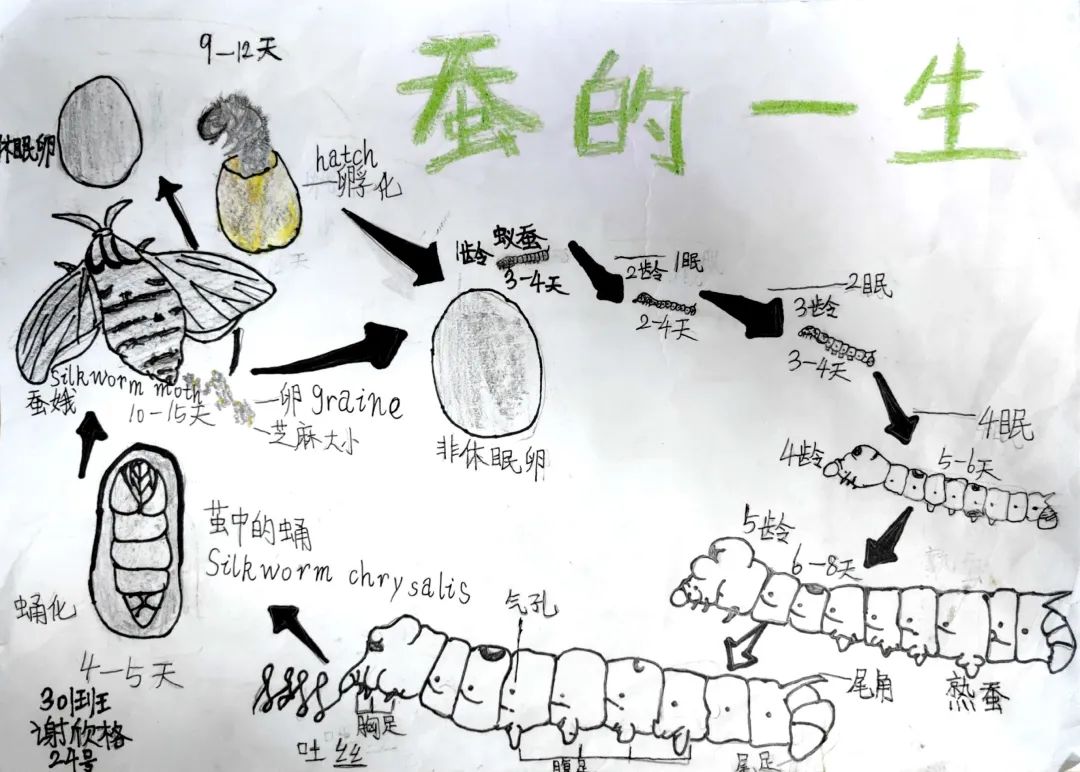 蚕的一生
9-12天
休眠卵
hatch
卵孵化
1龄
蚁蚕
3-4天
2龄
1眠
2-4天
2眠
3龄
3-4天
4眠
4龄
5-6天
5龄
6-8天
熟蚕
尾角
气孔
胸足
腹足
尾足
吐丝
茧中的蛹
Silkworm chrysalis
蛹化
4-5天
Silkworm moth
蚕娥
10-15天
卵graine
芝麻大小
非休眠卵
301班
谢欣格
24号